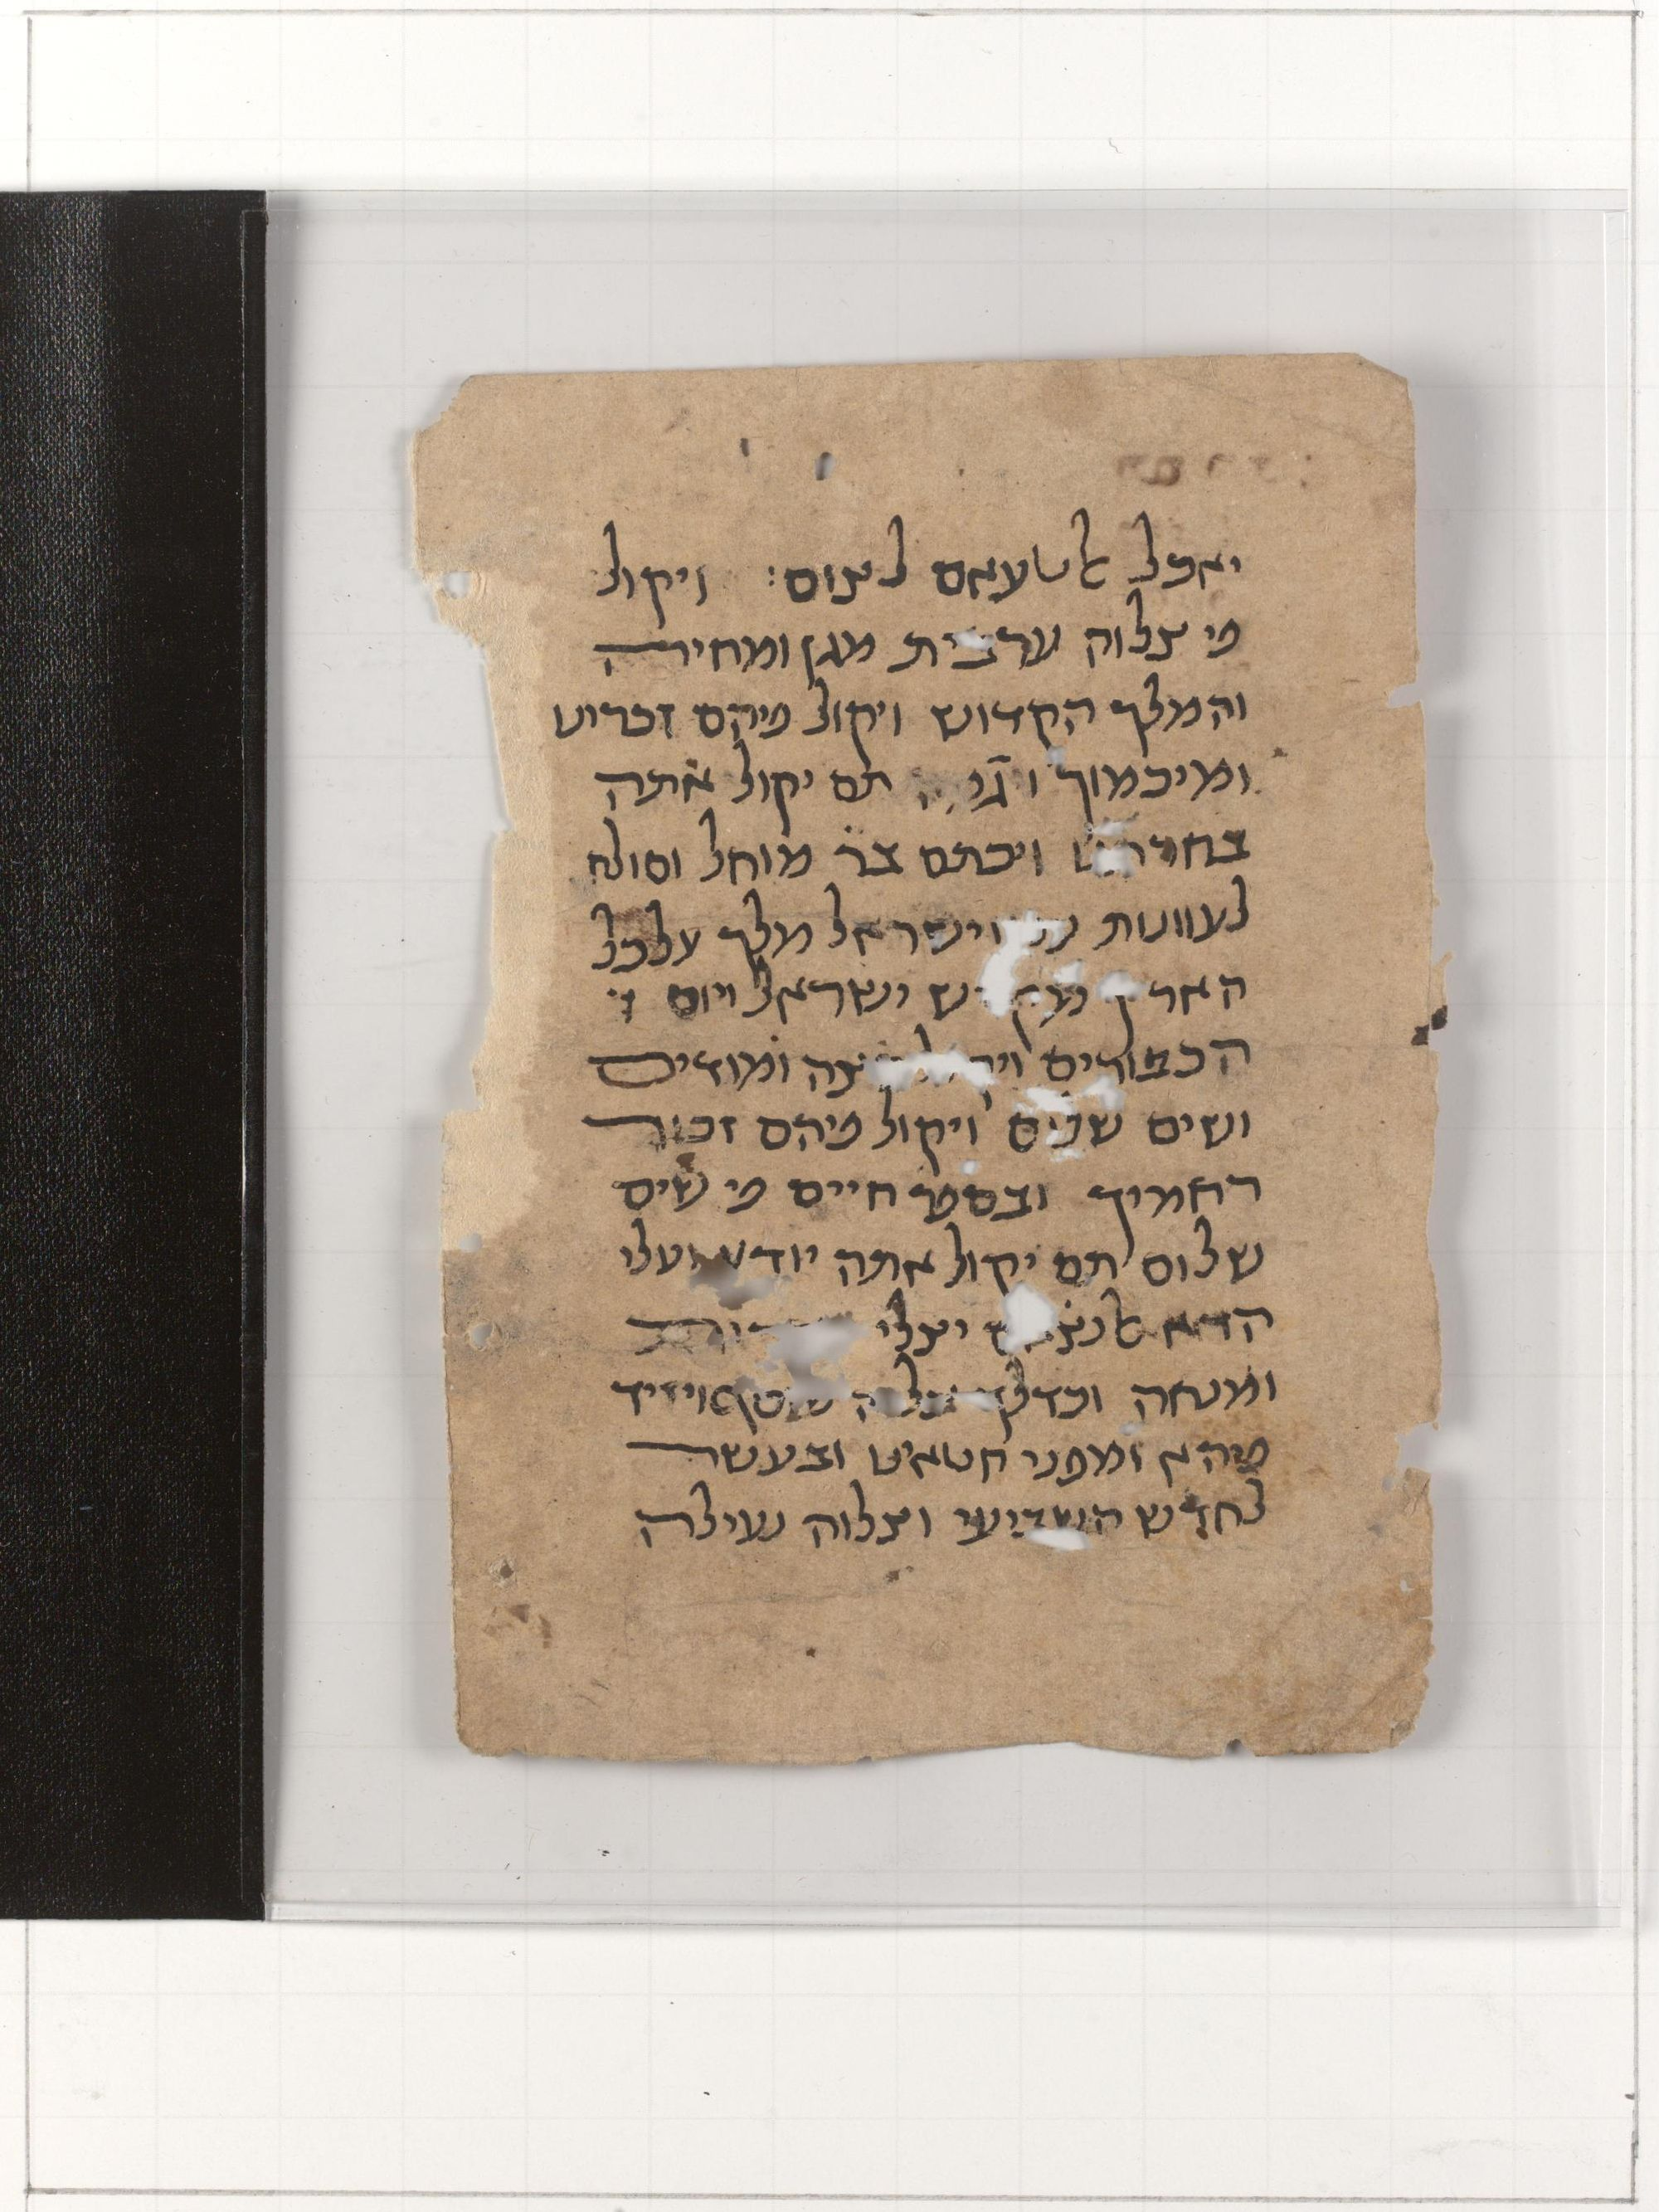 יאכל אלטעאם לצום: ויקול
פי צלוה ערבית מגן ומחיה
והמלך הקדוש ויקול פיהם זכרינו
ומיכמוך תם יקול אתה
בחרתנו ויכתם צר מוחל וסולח
לעוונות וישראל מלך עלכל
הארץ מקדש ישראל ויום
הכפורים רצה ומודים
ושים שלום ויקול פיהם זכור
רחמיך ובספר חיים פי שים
שלום תם יקול אתה יודע ועלי
הדא יצלי
ומנחה וכדלך ויזיד
פיהא ומפני חטאינו ובעשר
לחדש השביעי וצלוה נעילה